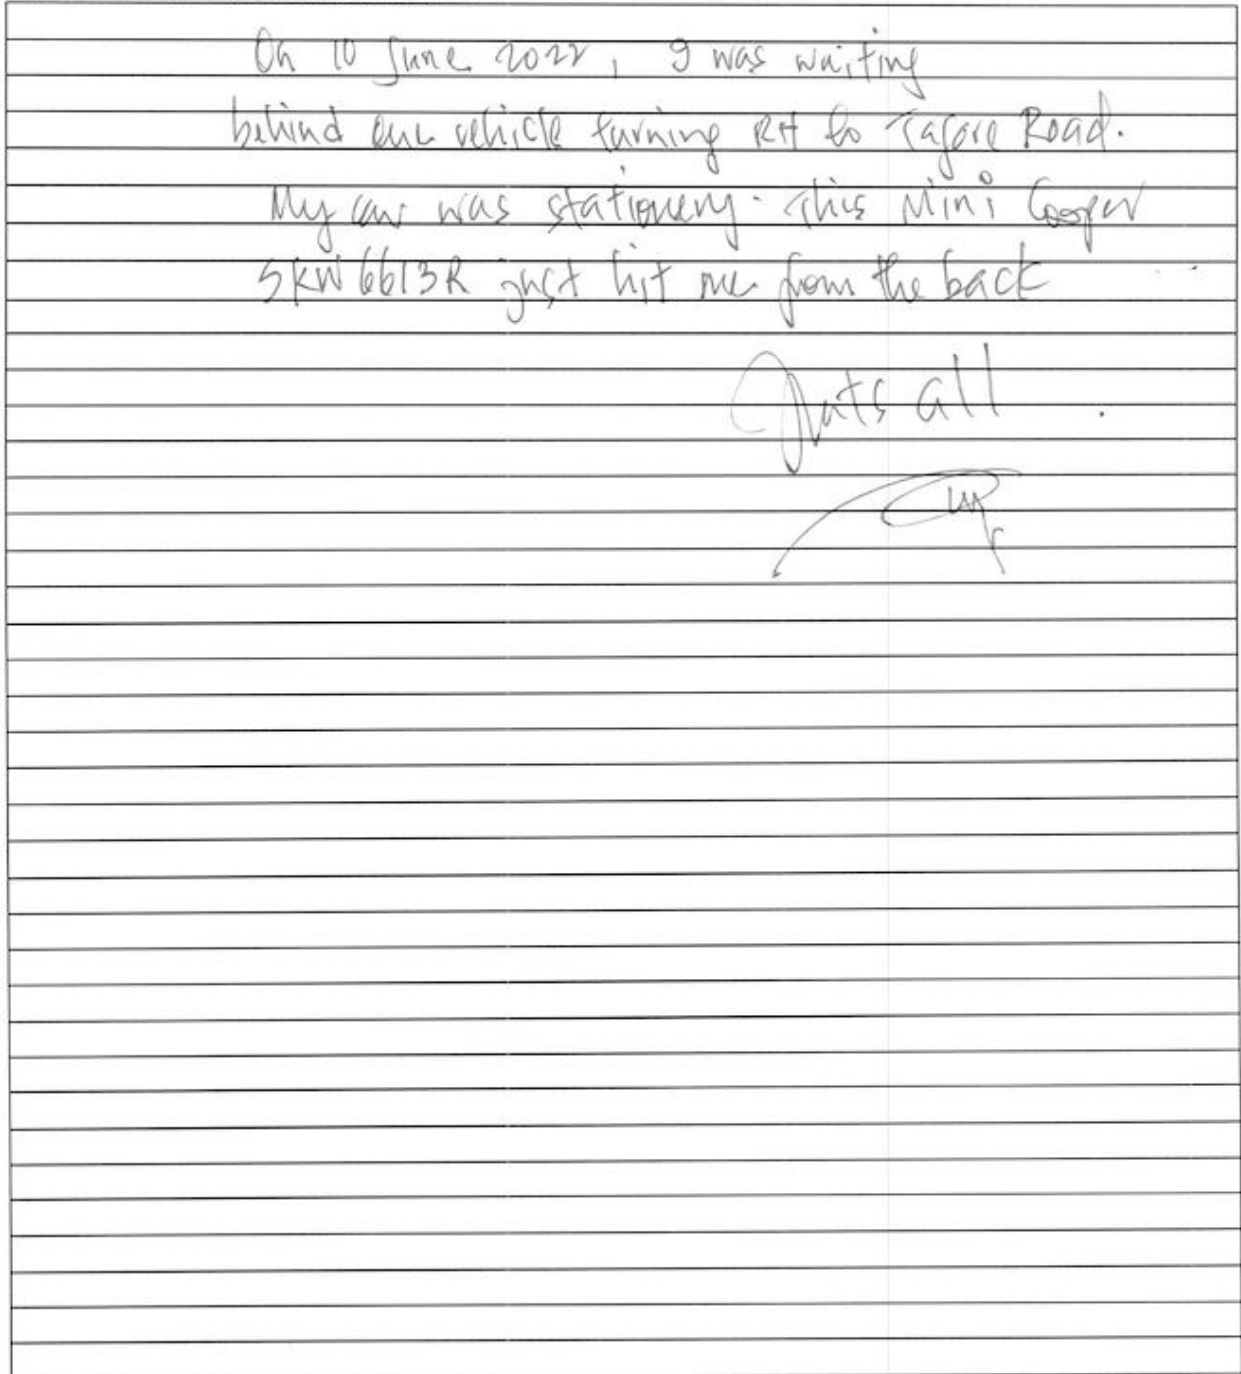 On 10 June 2022, I was waiting
behind one vehicle turning RH to Tagore Road.
My car was stationery. This Mini Cooper
SKW6613R just hit me from the back
Thats all.